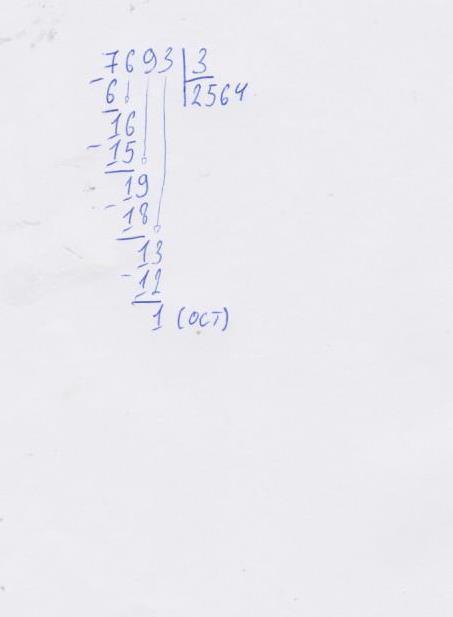 7693 | 3
- 6 | 2564
16
- 15
19
- 18
13
- 12
1 (ОСТ)